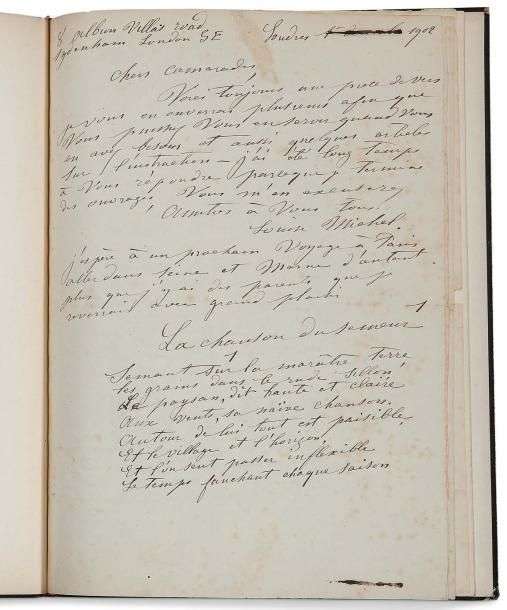 8 Albion Villas road
Sydenham London SE
Londres 1902
Chers camarades,
Voici toujours une pièce de vers
je vous en enverrai plusieurs afin que
Vous puissiez Vous en servir quand Vous
en avez besoin et aussi quelques articles
sur l'instruction – j'ai été longtemps
à Vous répondre parceque je termine
des ouvrages, Vous m'en excuserez
Amitiés à Vous tous
Louise Michel.
j'espère à un prochain Voyage à Paris
aller dans Seine et Marne d'autant
plus que j'y ai des parents que je
reverrais avec grand plaisir
La chanson du semeur
Semant sur la marâtre terre
les grains dans le rude sillon
Le paysan, dit haute et claire
Aux vents, sa naïve chanson.
Autour de lui tout est paisible,
Et le village et l'horizon,
Et l'on sent passer inflexible
Le temps fauchant chaque saison